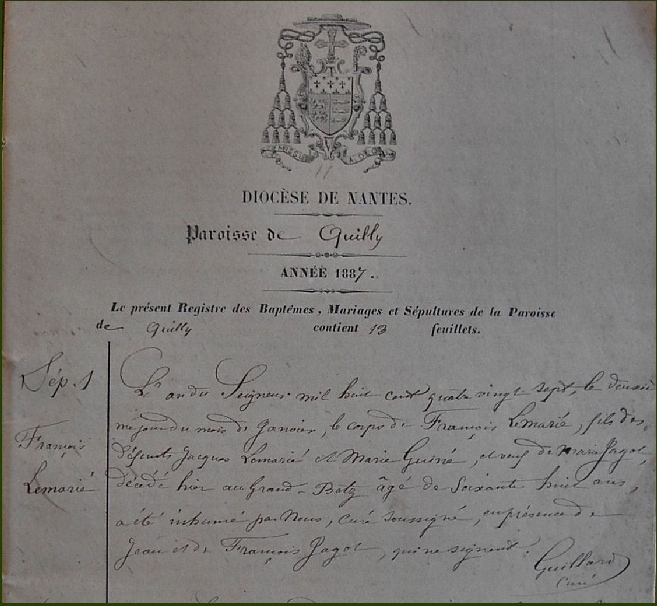 DIOCÈSE DE NANTES.
Paroisse de Quilly
ANNÉE 1887.
Le présent Registre des Baptêmes, Mariages et Sépultures de la Paroisse
de Quilly contient 13 feuillets.
Sép. 1
François
Lemarié
L'an du Seigneur mil huit cent quatre vingt sept, le deuxiè
me jour du mois de Janvier, le corps de François Lemarié, fils des
défunts Jacques Lemarié et Marie Guéné, et veuf de Marie Jagot,
décédé hier au Grand-Betz âgé de soixante huit ans,
a été inhumé par Nous, curé soussigné, en présence de
Jean et de François Jagot, qui ne signent.
Guillard
curé